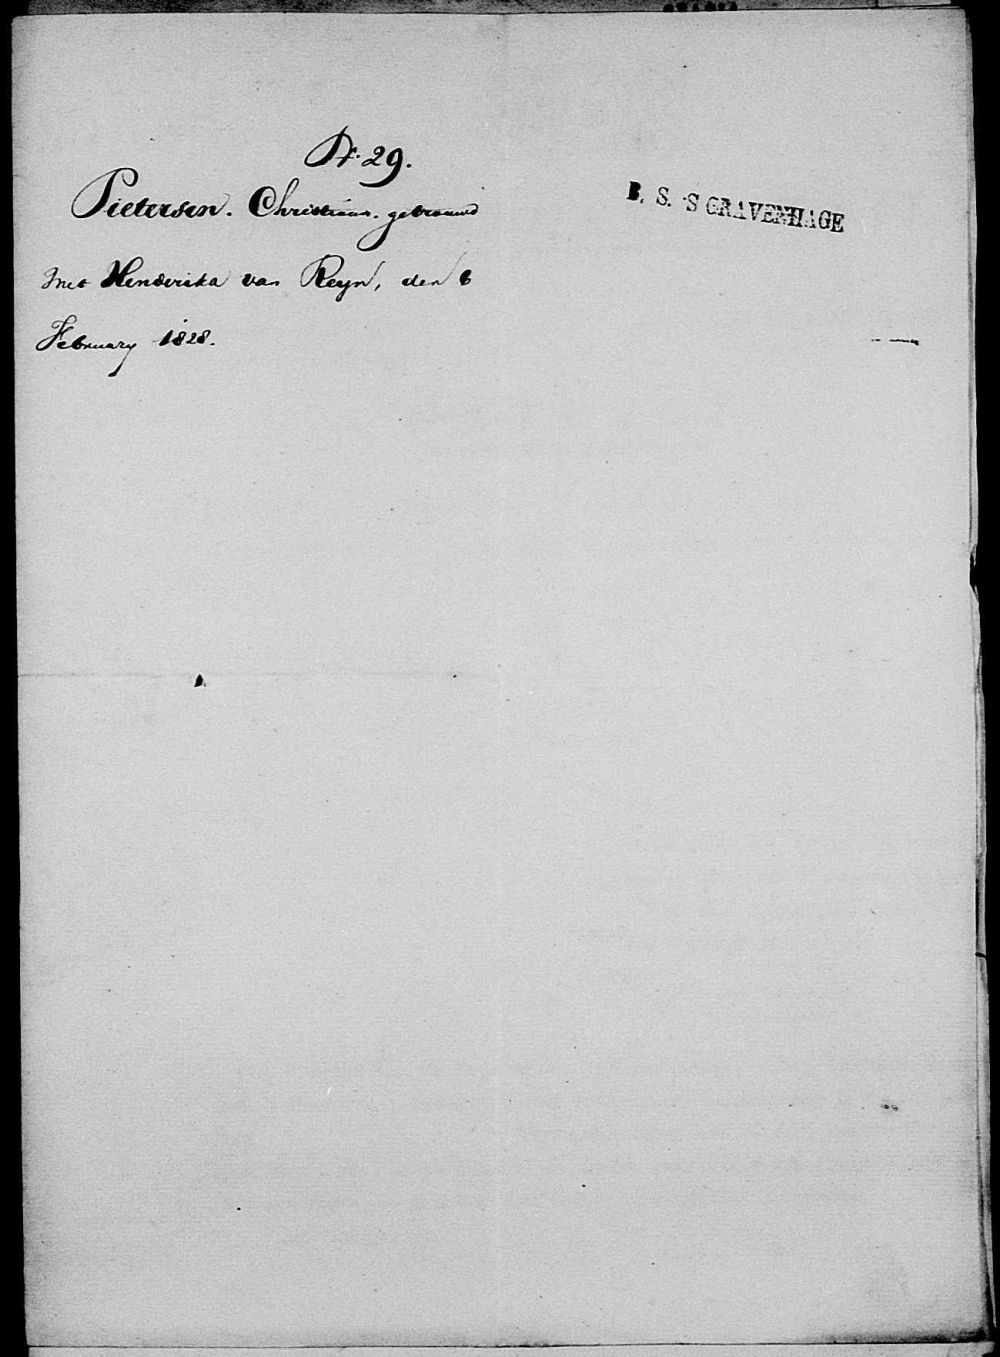 N. 29.
Pietersen. Christiaan. getrouwd
B. S. 'S GRAVENHAGE
met Henderika van Reyn, den 6
February 1828.